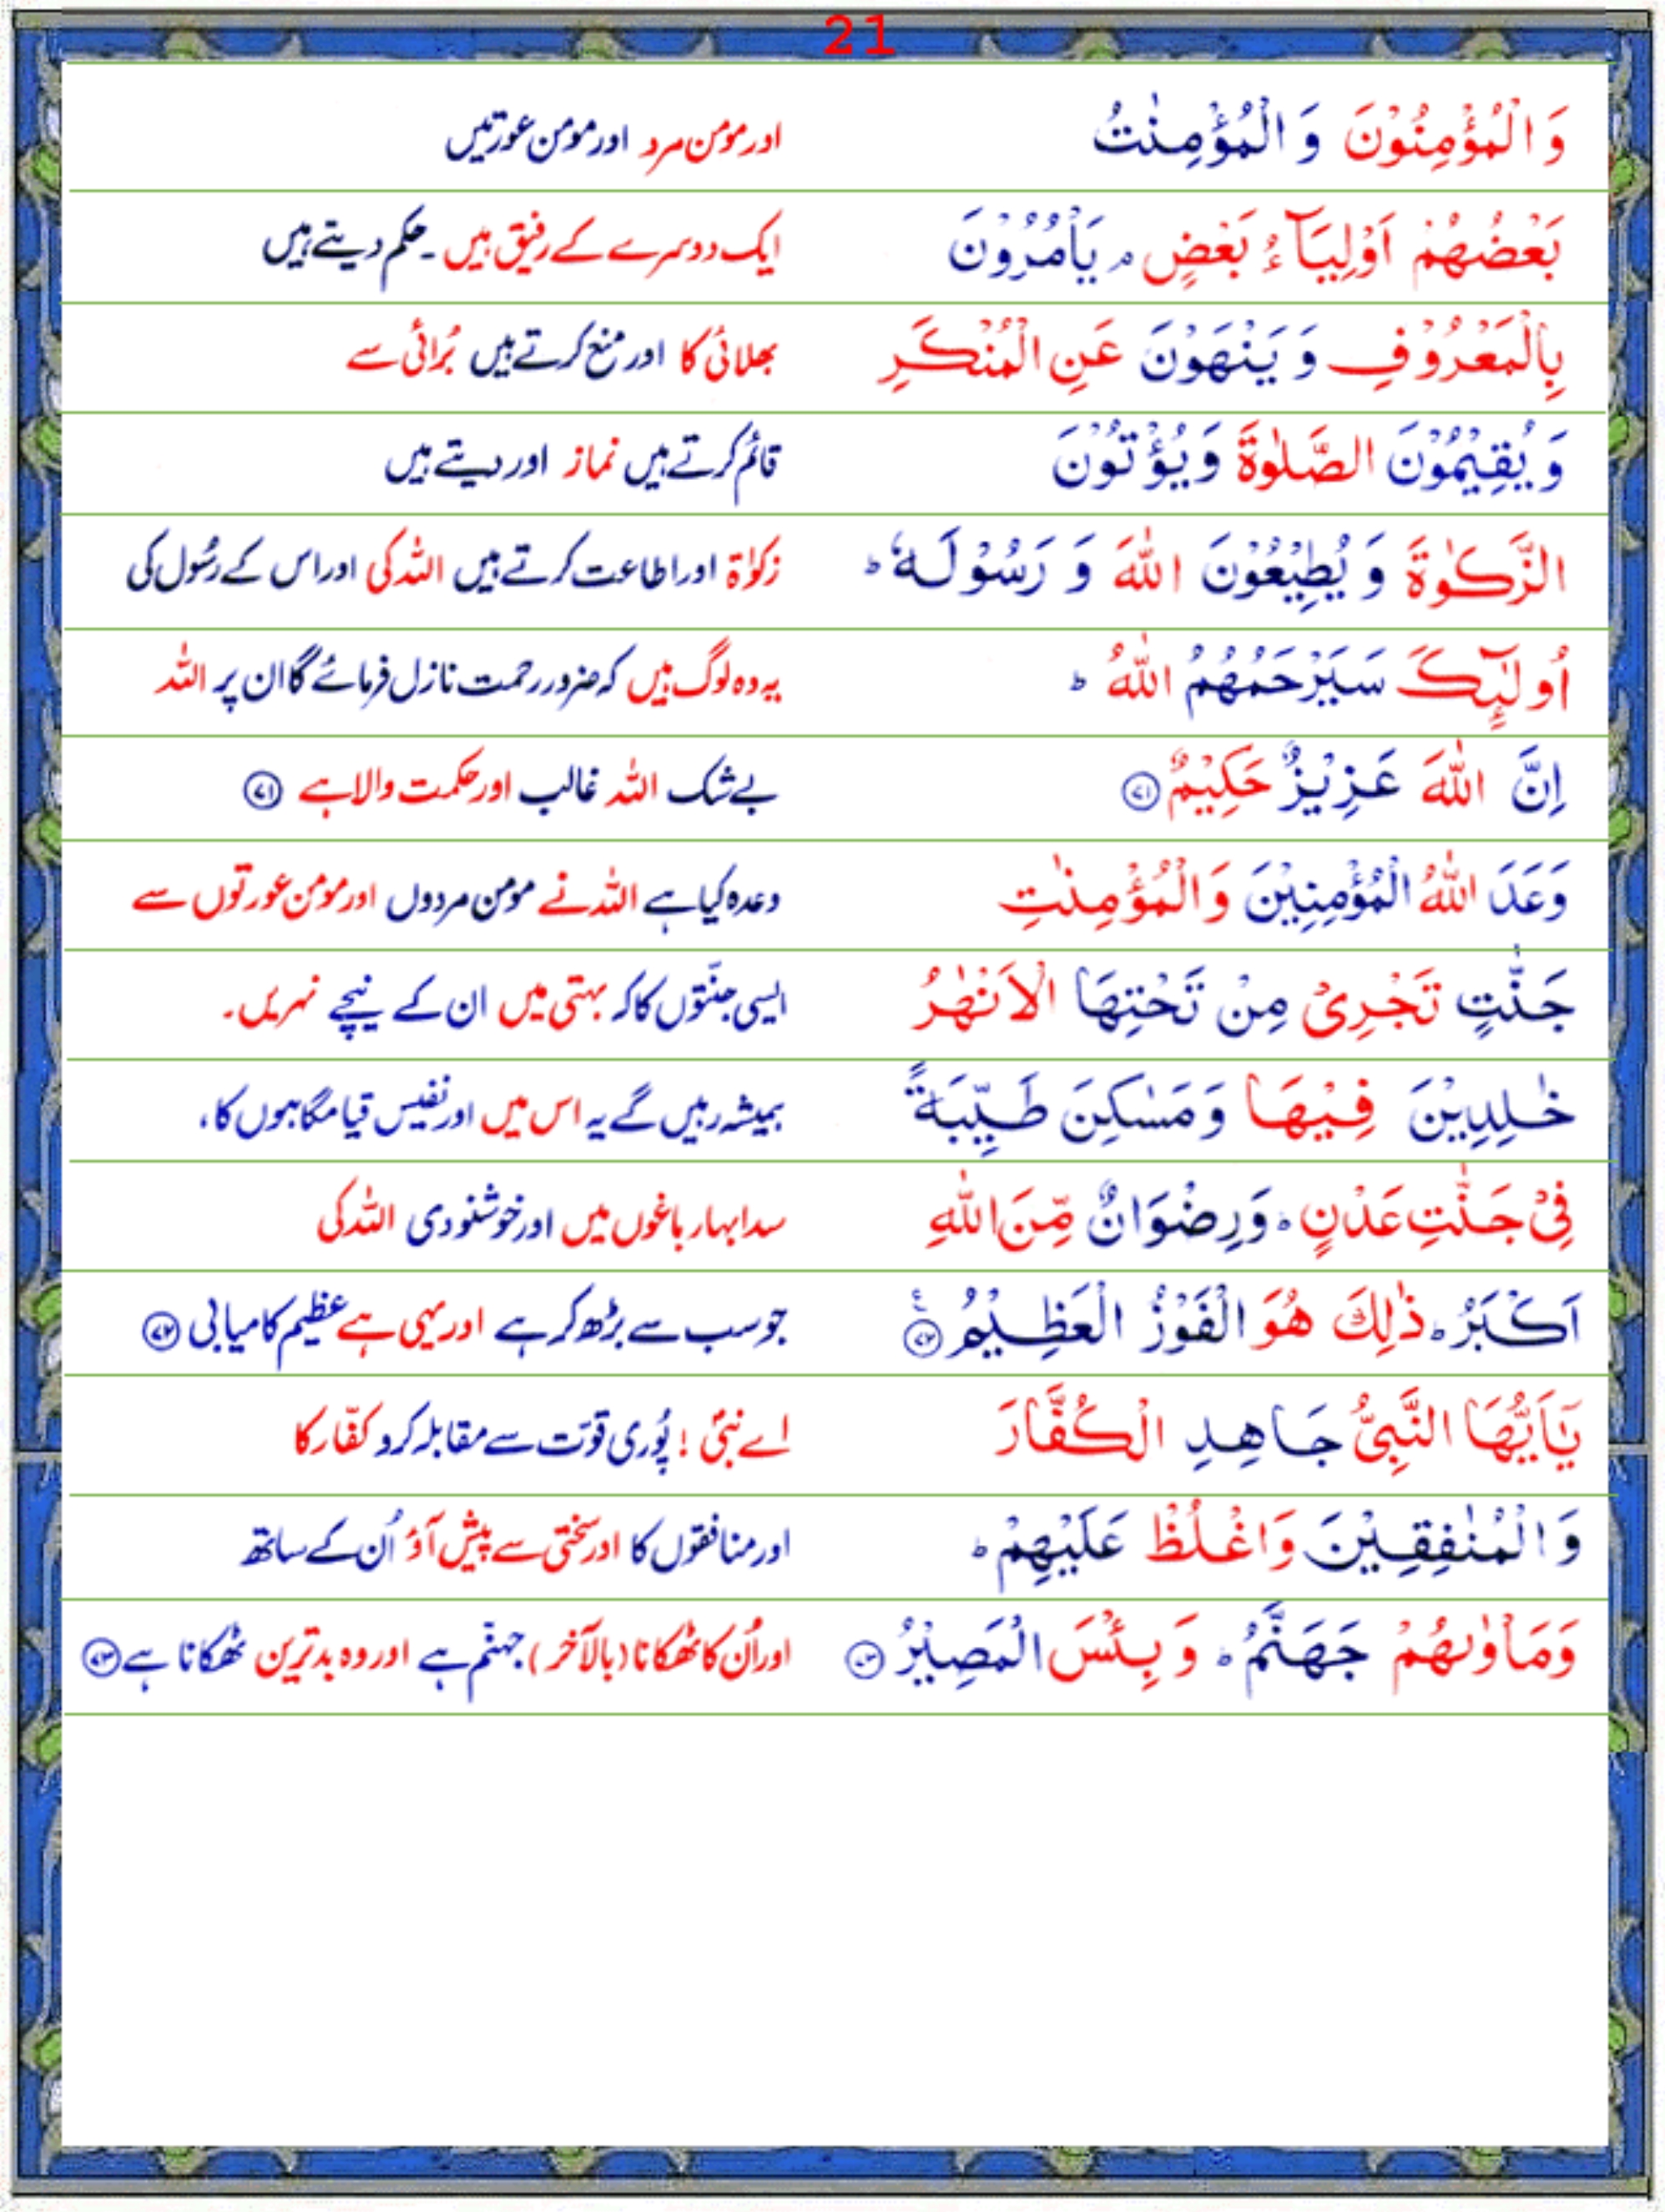 21
وَالْمُؤْمِنُوْنَ وَالْمُؤْمِنٰتُ اور مومن مرد اور مومن عورتیں
بَعْضُهُمْ اَوْلِيَآءُ بَعْضٍ ۘ يَاْمُرُوْنَ ایک دوسرے کے رفیق ہیں ۔ حکم دیتے ہیں
بِالْمَعْرُوْفِ وَيَنْهَوْنَ عَنِ الْمُنْكَرِ بھلائی کا اور منع کرتے ہیں بُرائی سے
وَيُقِيْمُوْنَ الصَّلٰوةَ وَيُؤْتُوْنَ قائم کرتے ہیں نماز اور دیتے ہیں
الزَّكٰوةَ وَيُطِيْعُوْنَ اللّٰهَ وَرَسُوْلَهٗ ؕ زکوٰۃ اور اطاعت کرتے ہیں اللہ کی اور اس کے رسُول کی
اُولٰٓئِكَ سَيَرْحَمُهُمُ اللّٰهُ ؕ یہ وہ لوگ ہیں کہ ضرور رحمت نازل فرمائے گا ان پر اللہ
اِنَّ اللّٰهَ عَزِيْزٌ حَكِيْمٌ ۷۱ بے شک اللہ غالب اور حکمت والا ہے ۷۱
وَعَدَ اللّٰهُ الْمُؤْمِنِيْنَ وَالْمُؤْمِنٰتِ وعدہ کیا ہے اللہ نے مومن مردوں اور مومن عورتوں سے
جَنّٰتٍ تَجْرِىْ مِنْ تَحْتِهَا الْاَنْهٰرُ ایسی جنّتوں کا کہ بہتی ہیں ان کے نیچے نہریں۔
خٰلِدِيْنَ فِيْهَا وَمَسٰكِنَ طَيِّبَةً ہمیشہ رہیں گے یہ اس میں اور نفیس قیامگاہوں کا،
فِىْ جَنّٰتِ عَدْنٍ ؕ وَرِضْوَانٌ مِّنَ اللّٰهِ سدا بہار باغوں میں اور خوشنودی اللہ کی
اَكْبَرُ ؕ ذٰلِكَ هُوَ الْفَوْزُ الْعَظِيْمُ ۷۲ جو سب سے بڑھ کر ہے اور یہی ہے عظیم کامیابی ۷۲
يٰٓاَيُّهَا النَّبِىُّ جَاهِدِ الْكُفَّارَ اے نبیؐ ! پُوری قوّت سے مقابلہ کرو کفّار کا
وَالْمُنٰفِقِيْنَ وَاغْلُظْ عَلَيْهِمْ ؕ اور منافقوں کا اور سختی سے پیش آؤ اُن کے ساتھ
وَمَاْوٰىهُمْ جَهَنَّمُ ؕ وَبِئْسَ الْمَصِيْرُ ۷۳ اور اُن کا ٹھکانا (بالآخر) جہنّم ہے اور وہ بدترین ٹھکانا ہے ۷۳